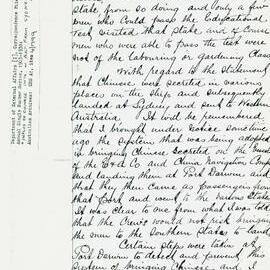 State from so doing and only a few
men who could pass the Educational
Test visited that State and of course
men who were able to pass the test were
not of the labouring or gardening Class
With regard to the statement
that Chinese were secreted in various
places on the Ships and subsequently
landed at Sydney and sent to Western
Australia. It will be remembered
that I brought under notice some time
ago the system that was being adopted
in bringing Chinese secreted on the
of the E & A Co and China Navigation Comp
and landing them at Port Darwin and
that they then came as passengers from
that Port and went to the various States
It was clear to me from what I was told
that the Crews would not risk bringing
the men to the Southern States to land
Certain steps were taken at
Port Darwin to detect and prevent this
system of bringing Chinese and I
Department of External Affairs [II], Correspondence files,